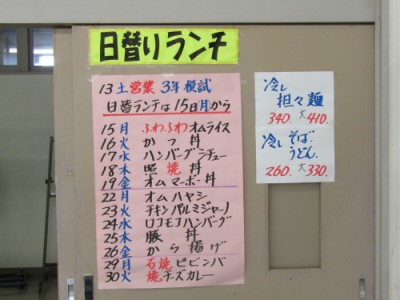 日替りランチ
13土営業 3年模試
日替ランチは15日月から
15月 ふわふわオムライス
16火 かつ丼
17水 ハンバーグシチュー
18木 照焼丼
19金 オムマーボー丼
22月 オムハヤシ
23火 チキンパルミジャーノ
24水 ロコモコハンバーグ
25木 豚丼
26金 から揚げ
29月 石焼ビビンバ
30火 焼チーズカレー
冷し
担々麺
340. 大410.
冷しそば.
うどん.
260. 大330.